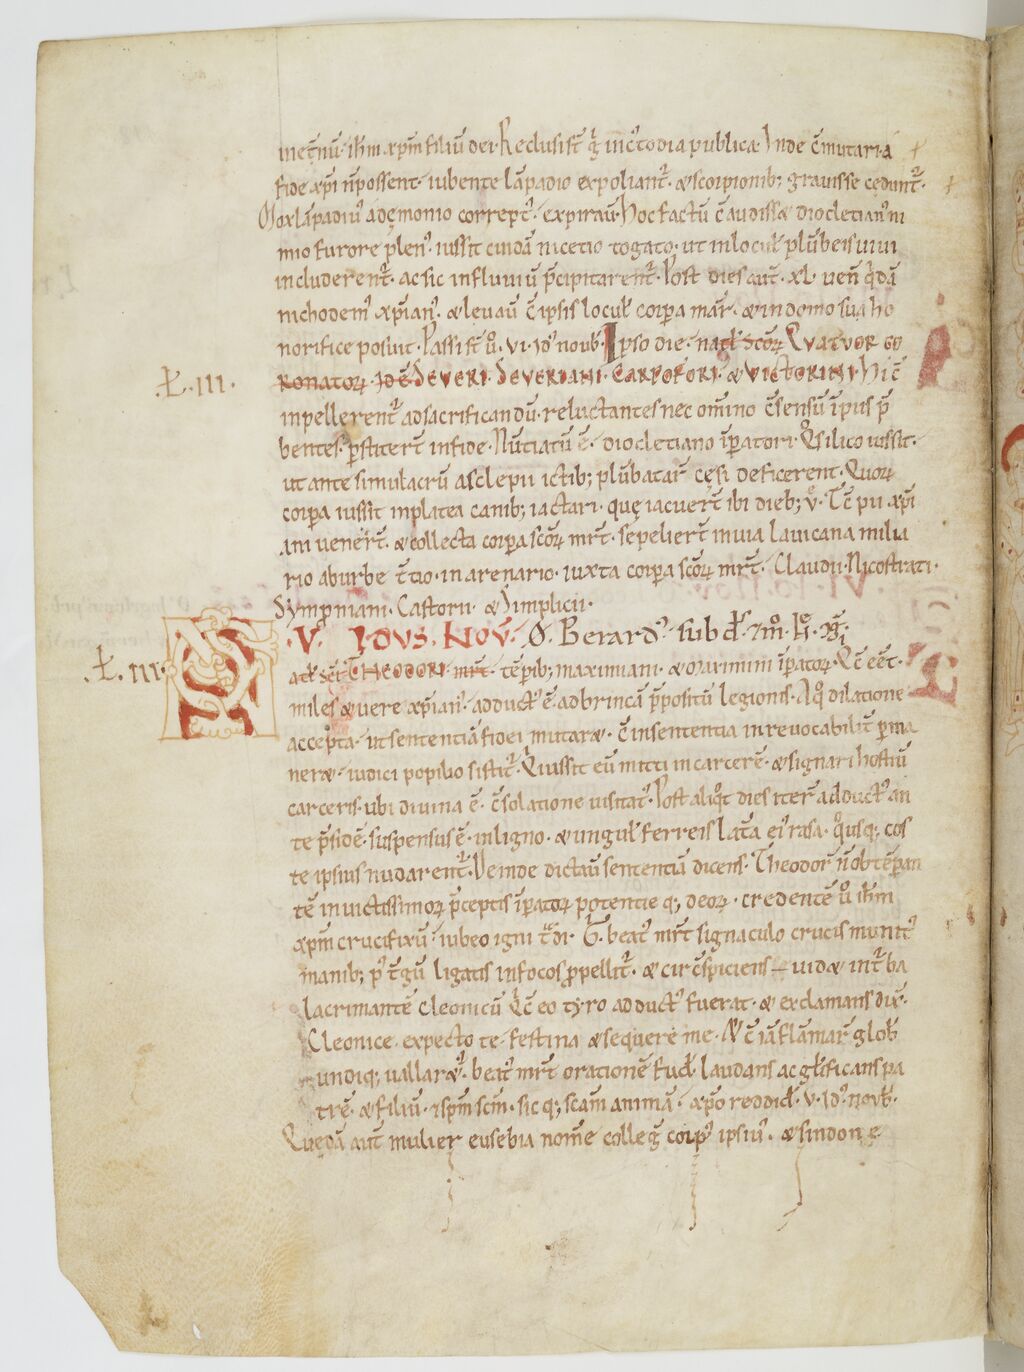 inet̄nū· ih̄m xp̄m filiū dei· Reclusi st̄ g̃ in c᷒todia publica· Inde c̄mutari a
fide xp̄i n̄ possent· iubente lāpadio expoliant᷑· & scorpionib; grauisse cedunt᷑·
Mox lāpadiu᷒ a dęmonio correpť· expirau̅· Hoc factū c̄ audiss& diocletian᷒ ni
mio furore plen᷒· iussit cuidā nicetio togato· ut in locul̵ plūbeis uiui
includerent᷑· ac sic in fluuiū p̄cipitarent᷑· Post dies aut̄· xl· ven̄ q̇dā
nichodem᷒ xp̄ian᷒· & leuau̅ c̄ ipsis locul̵ corpa mar̄· & in domo sua ho
norifice posuit· Passi st̄ ů· vi· id᷒ noub̵· Ipso die· nat̵ sc̄oꝝ Quatuor co
·Ƚ· III· ronatoꝝ· id ē Seueri· Seueriani· Carpofori· & Victorini· Hi c̄
inpellerent᷑ ad sacrificandū· reluctantes nec omino c̄sensū ip̄ius p̄
bentes· pstiter̄t in fide· Nūtiatū ē· diocletiano ip̄atori· Q̊ silico iussit·
ut ante simulacrū asclepii ictib; plūbatar̄ cęsi deficerent· Quoꝝ
corpa iussit in platea canib; iactari· quę iacuer̄t ibi dieb; v̊· Tc̄ pii xp̄i
ani vener̄t· & collecta corpa sc̄oꝝ mr̄t· sepelier̄t in uia lauicana milia
rio ab urbe t̄tio· in arenario· iuxta corpa sc̄oꝝ mr̄t· Claudii· Nicostrati·
Symproniani· Castorii· & Simplicii·
·V· Idus· Nov̄· O· Berard᷒· sub d̵·
·Ƚ· III· S atl̵ sc̄i Theodori· mr̄t· tēpib; maximiani· & maximini ip̄atoꝝ· Qc̄ eēt·
miles & vere xp̄ian᷒· adduct᷒ ē· ad brincā p̄positū legionis· A q̊ dilatione
accepta· ut sententiā fidei mutar&· c̄ in sententia inreuocabilit̄ pma
ner&· iudici popibo sistit᷑· Q̇ iussit eū mitti in carcerē· & signari hostiū
carceris· ubi diuina ē· c̄solatione uisitat᷒· Post aliq̊t dies iter̄ adduct᷒ an
te p̄sidē· suspensus ē· in ligno· & ungul̵ ferreis lat̄a ei᷒ rasa· q̊usq; cos
te ipsius nudarent᷑· Deinde dictau̅ sententiā dicens· Theodor̄ n̄ obtēpan
tē inuictissimoꝝ p̄ceptis ip̄atoꝝ potentie q; deoꝝ· credentē ů ih̄m
xp̄m crucifixū· iubeo igni t̄di· T̄· beat᷒ mr̄t signaculo crucis munit᷒
manib; p᷒ t̄gū ligatis in focos ppellit᷑· & circ̄spiciens – uid& int᷑ ba
lacrimantē cleonicū q̇ c̄ eo tyro adduct᷒ fuerat· & exclamans dix̄·
Cleonice expecto te· festina & sequere me· Ac̄ iā flāmar̄ glob̵
undiq; uallar&᷑· beat᷒ mr̄t orationē fud̵ laudans ac gl̵ificans pa
trē· & filiū· & sp̄m sc̄m· sic q; sc̄am animā· xp̄o reddid̵· v· id᷒ novb̵·
Quędā aut̄ mulier eusebia nomīe colleg̃ corp᷒ ipsiu᷒· & sindone